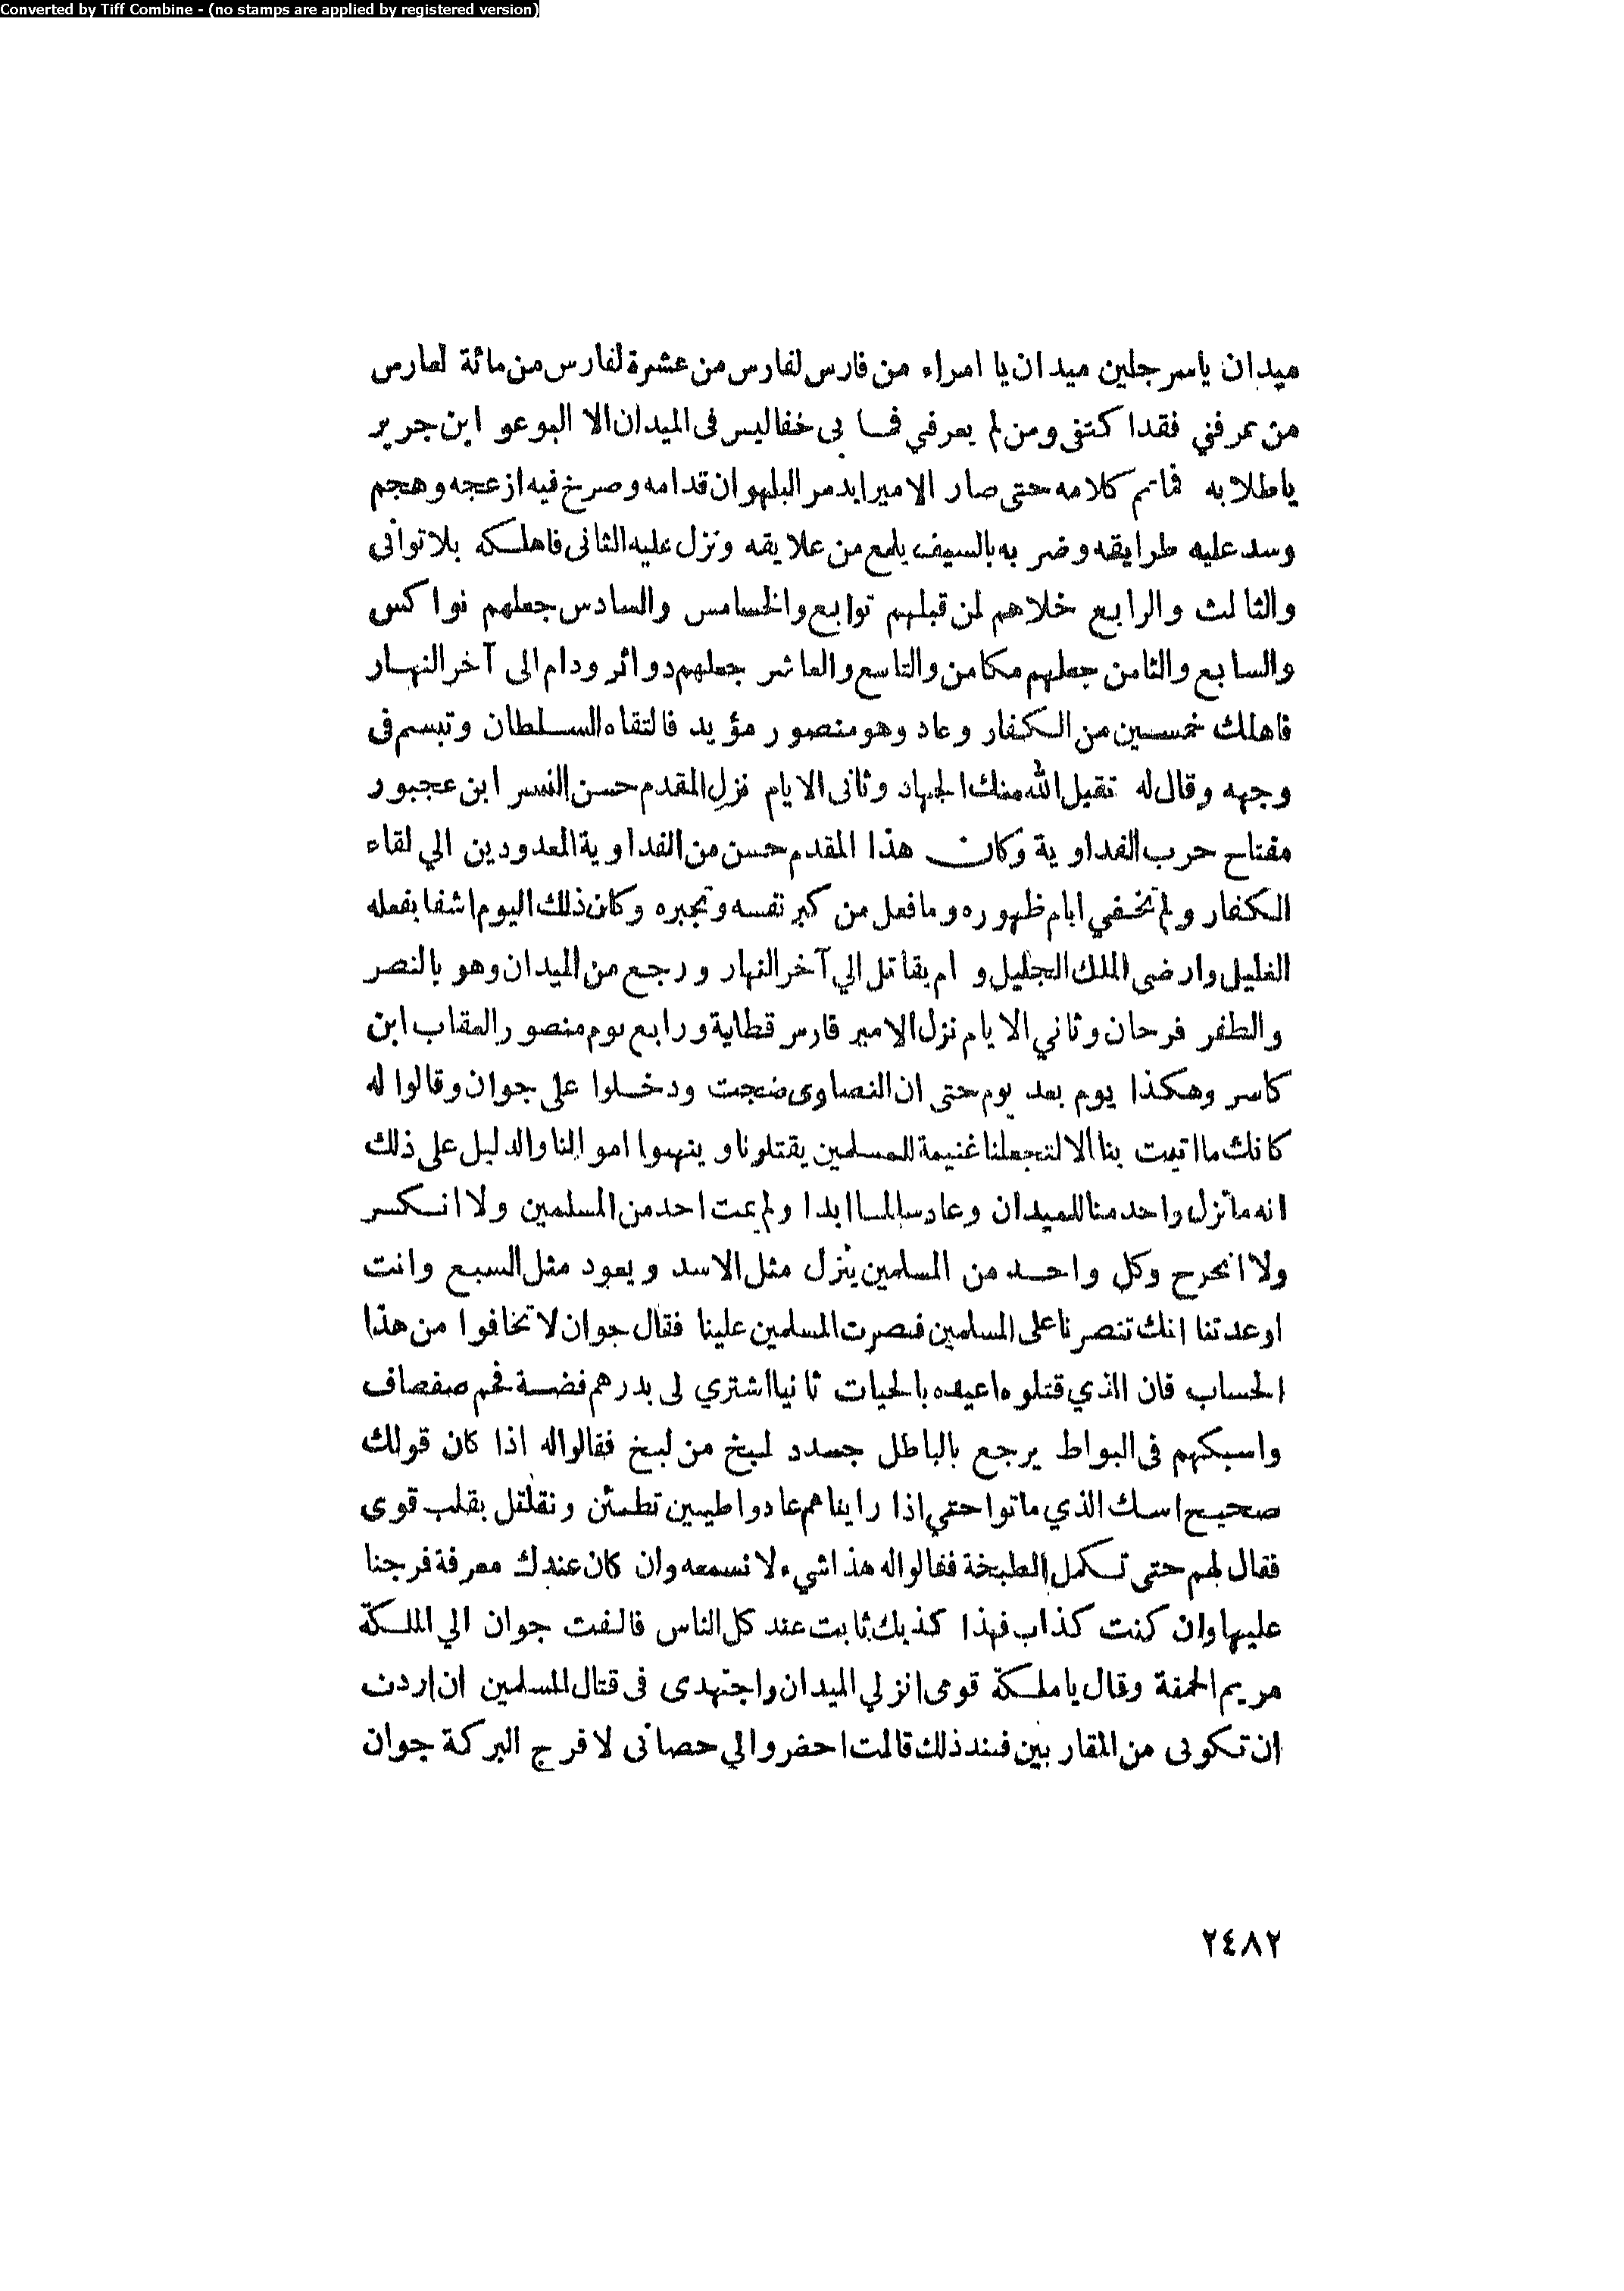 Converted by Tiff Combine - (no stamps are applied by registered version)
ميدان ياسرجلين ميدان يا امراء من فارس لفارس من عشرة لفارس من مائة لفارس
من عرفني فقد اكتفى ومن لم يعرفني فما بى خفا ليس فى الميدان الا البوعو ابن جرير
ياطلابه فماتم كلامه حتى صار الامير ايدمر البلهوان قدامه وصرخ فيه ازعجه وهجم
وسد عليه طرايقه وضربه بالسيف يلمع من علايقه ونزل عليه الثانى فاهلكه بلا توانى
والثالث والرابع خلاهم لمن قبلهم توابع والخامس والسادس جعلهم نواكس
والسابع والثامن جعلهم مكامن والتاسع والعاشر جعلهم دوائر ودام الى آخر النهار
فاهلك خمسين من الكفار وعاد وهو منصور مؤيد فالتقاه السلطان وتبسم فى
وجهه وقال له تقبل الله منك الجهاد وثانى الايام نزل المقدم حسن النسر ابن عجبور
مفتاح حرب الفداوية وكان هذا المقدم حسن من الفداوية المعدودين الي لقاء
الكفار ولم تخفي ايام ظهوره وما فعل من كبر نفسه وتجبره وكان ذلك اليوم اشفا بفعله
الغليل وارضى الملك الجليل و ام يقاتل الي آخر النهار ورجع من الميدان وهو بالنصر
والظفر فرحان وثاني الايام نزل الامير فارس قطاية ورابع يوم منصور العقاب ابن
كاسر وهكذا يوم بعد يوم حتى ان النصاوى ضجت ودخلوا على جوان وقالوا له
كانك ما اتيت بنا الا لتجعلنا غنيمة للمسلمين يقتلونا وينهبوا اموالنا والدليل على ذلك
انه ما نزل واحد منا للميدان وعاد سالما ابدا ولم يمت احد من المسلمين ولا انكسر
ولا انجرح وكل واحد من المسلمين ينزل مثل الاسد ويعود مثل السبع وانت
اوعدتنا انك تنصرنا على المسلمين فنصرت المسلمين علينا فقال جوان لا تخافوا من هذا
الحساب فان الذي قتلوه اعيده بالحيات ثانيا اشتري لى بدرهم فضة فحم صفصاف
واسبكهم فى البواط يرجع بالباطل جسدد لمبخ من لبخ فقالواله اذا كان قولك
صحيح اسك الذي ماتوا حتي اذا رايناهم عادوا طيبين تطمئن ونقلتل بقلب قوى
فقال لهم حتى تكمل الطبخة فقالواله هذا شيء لا نسمعه وان كان عندك معرفة فرجنا
عليها وان كنت كذاب فهذا كذبك ثابت عند كل الناس فالفت جوان الي الملكة
مريم الحمقة وقال ياملكة قومى انزلي الميدان واجتهدى فى قتال المسلمين ان اردت
ان تكونى من المقاربين فعند ذلك قالت احضروالي حصانى لا فرج البركة جوان
٢٤٨٢